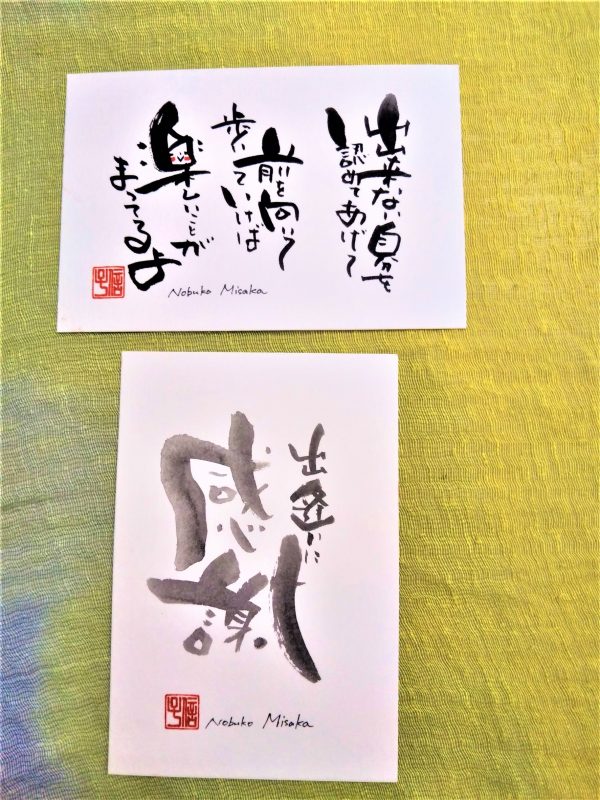 出来ない自分を
認めてあげて
前を向いて
歩いていけば
楽しいことが
まってるよ
信子
Nobuko Misaka
出逢いに
感謝
信子
Nobuko Misaka